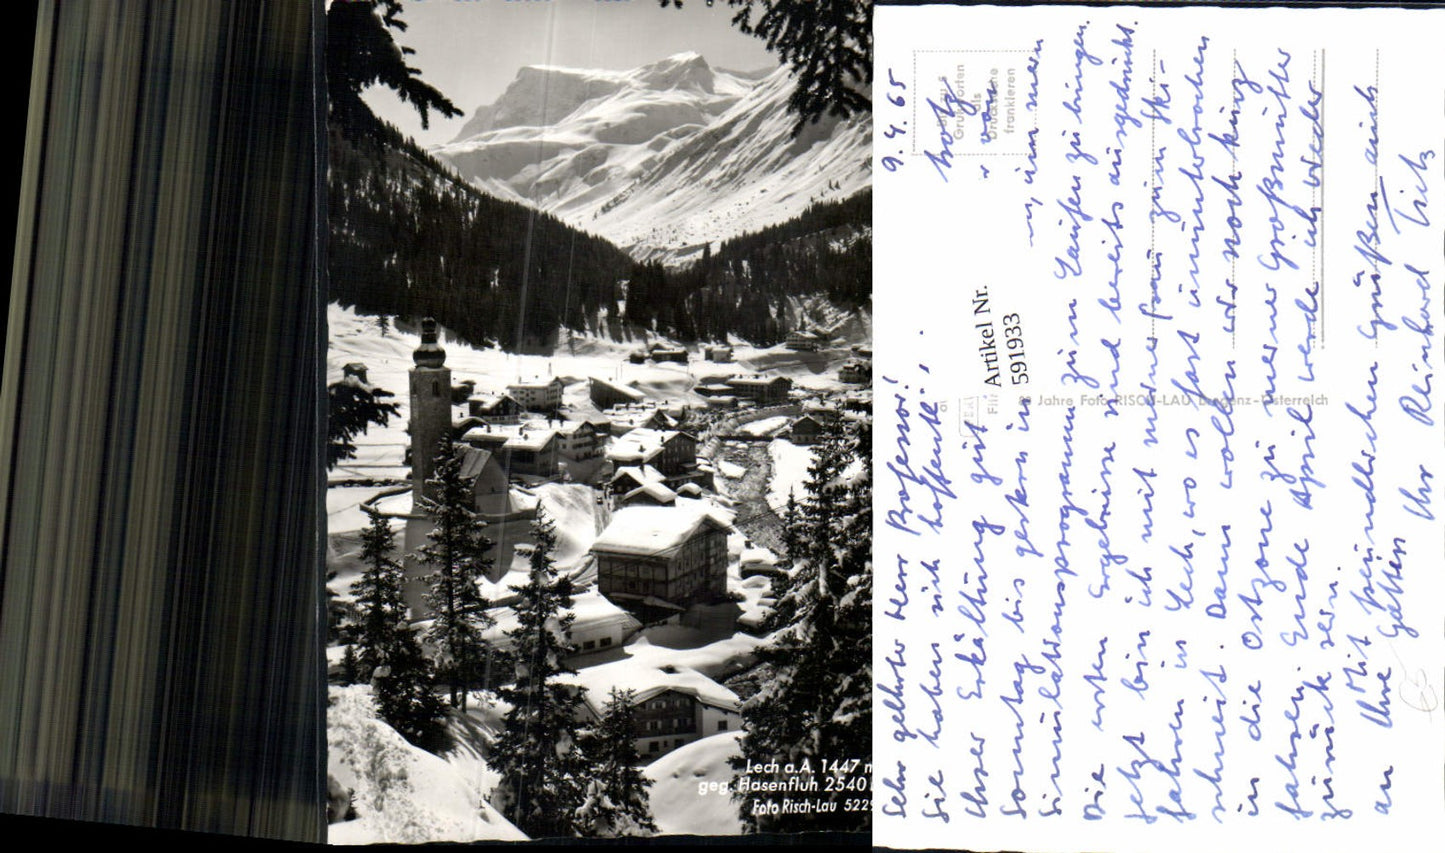 Lech a.A. 1447 m
geg. Hasenfluh 2540
Foto Risch-Lau 5229
9.4.65
Sehr geehrter Herr Professor!
Sie haben sich hoffentl.
trotz
Ihrer Erkältung gut
von
Sonntag bis gestern in
um mein
Simulationsprogramm zum Laufen zu bringen.
Die ersten Ergebnisse sind bereits ausgedruckt.
Jetzt bin ich mit meiner Frau zum Ski-
fahren in Lech, wo es fast ununterbrochen
schneit. Dann wollen wir noch kurz
in die Ostzone zu meiner Großmutter
fahren. Ende April werde ich wieder
zurück sein.
Mit freundlichen Grüßen auch
an Ihre Gattin Ihr Reinhard Fritz
Artikel Nr.
591933
Grußworten
als
Drucksache
frankieren
Jahre Foto RISCH-LAU Bregenz-Österreich